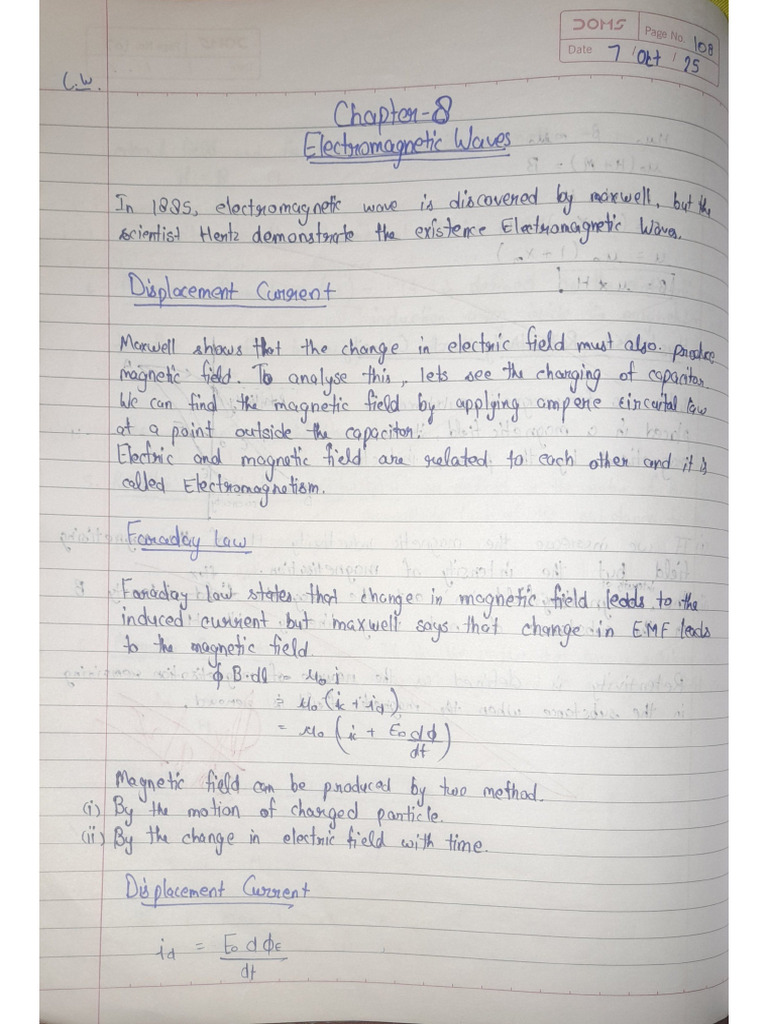 DOMS
Page No. 108
Date 7 / Oct / 25
C.W.
Chapter-8
Electromagnetic Waves
In 1885, electromagnetic wave is discovered by maxwell, but the
scientist Hertz demonstrate the existence Electromagnetic Wave.
Displacement Current
Maxwell shows that the change in electric field must also produce
magnetic field. To analyse this, lets see the changing of capacitor
We can find the magnetic field by applying ampere circuital law
at a point outside the capacitor.
Electric and magnetic field are related to each other and it is
called Electromagnetism.
Faraday Law
Faraday Law states that change in magnetic field leads to the
induced current but maxwell says that change in E.M.F leads
to the magnetic field.
∮ B·dl = μ₀ i
= μ₀ (ic + id)
= μ₀ (ic + E₀ dϕ/dt)
Magnetic field can be produced by two method.
(i) By the motion of charged particle.
(ii) By the change in electric field with time.
Displacement Current
id = E₀ dϕE/dt